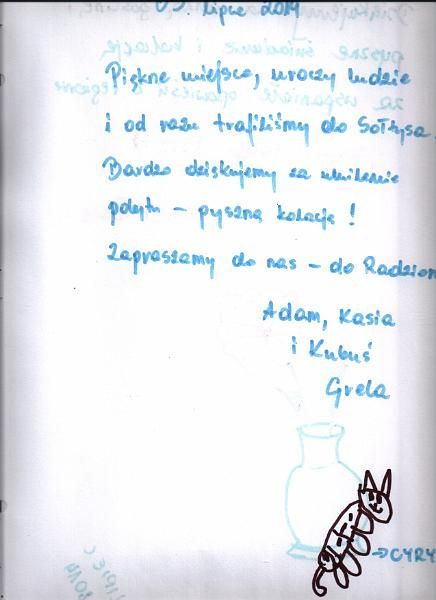 05. lipca 2014
Piękne miejsce, uroczy ludzie
i od razu trafiliśmy do Sołtysa.
Bardzo dziękujemy za umilenie
pobytu – pyszną kolację!
Zapraszamy do nas – do Radzion
Adam, Kasia
i Kubuś
Grela
→CYRY
LIPIEC